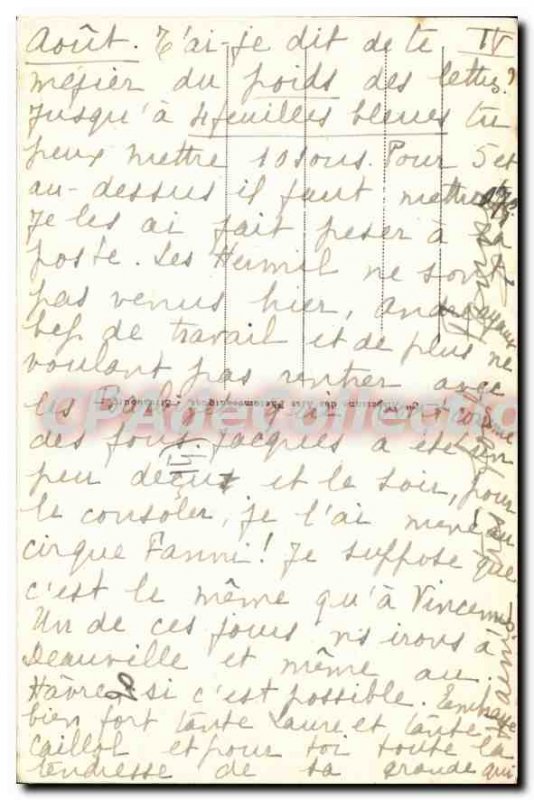 Août. T'ai-je dit de te IV
méfier du poids des lettres?
Jusqu'à 4 feuilles bleues tu
peux mettre 10 sous. Pour 5 et
au-dessus il faut mettre
Je les ai fait peser à la
poste. Les Hermil ne sont
pas venus hier, André ayant
bep de travail et de plus ne
voulant pas rentrer avec
les
des fous. Jacques a été un
peu déçu et le soir, pour
le consoler, je l'ai mené au
cirque Fanni! Je suppose que
c'est le même qu'à Vincennes
Un de ces jours ns irons à
Deauville et même au
Hâvre, si c'est possible. Embrasse
bien fort tante Laure et tante
Caillol et pour toi toute la
tendresse de ta grande qui
CPAdeCollection